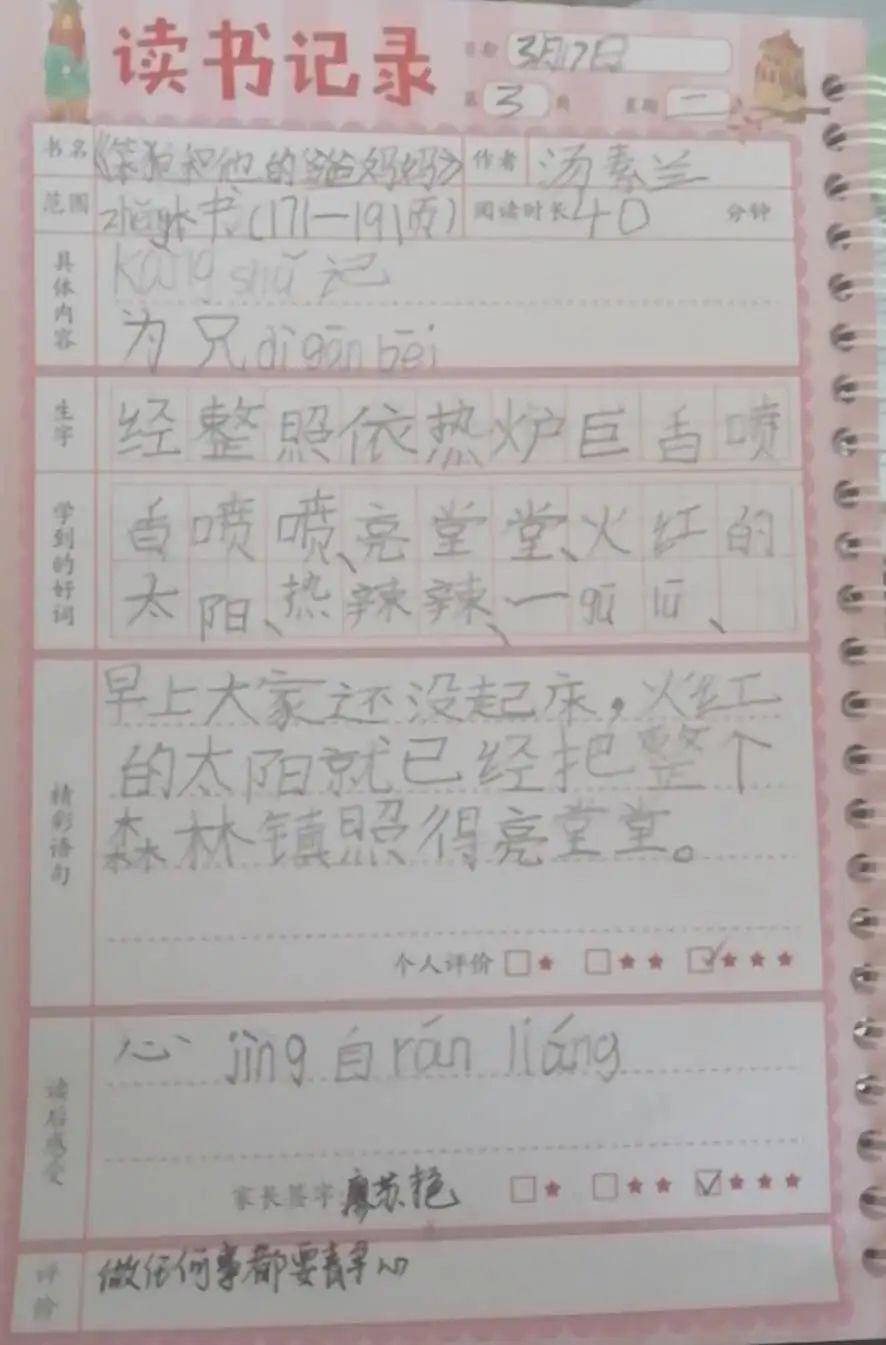 读书记录
日期 3月17日
第 3 周 星期 二
书名 《笨狼和他的爸爸妈妈》 作者 汤素兰
范围 zhěng本书(171—191页) 阅读时长 40 分钟
具体内容
kàng shǔ 记
为兄dì gān bēi
生字
经整照依热炉巨香喷
学到的好词
香喷喷、亮堂堂、火红的
太阳、热辣辣、一gū lū、
精彩语句
早上大家还没起床，火红
的太阳就已经把整个
森林镇照得亮堂堂。
个人评价 ★ ★★ ✓★★★
读后感受
心jìng自rán liáng
家长签字 廖苏艳 ★ ★★ ✓★★★
评价
做任何事都要静心